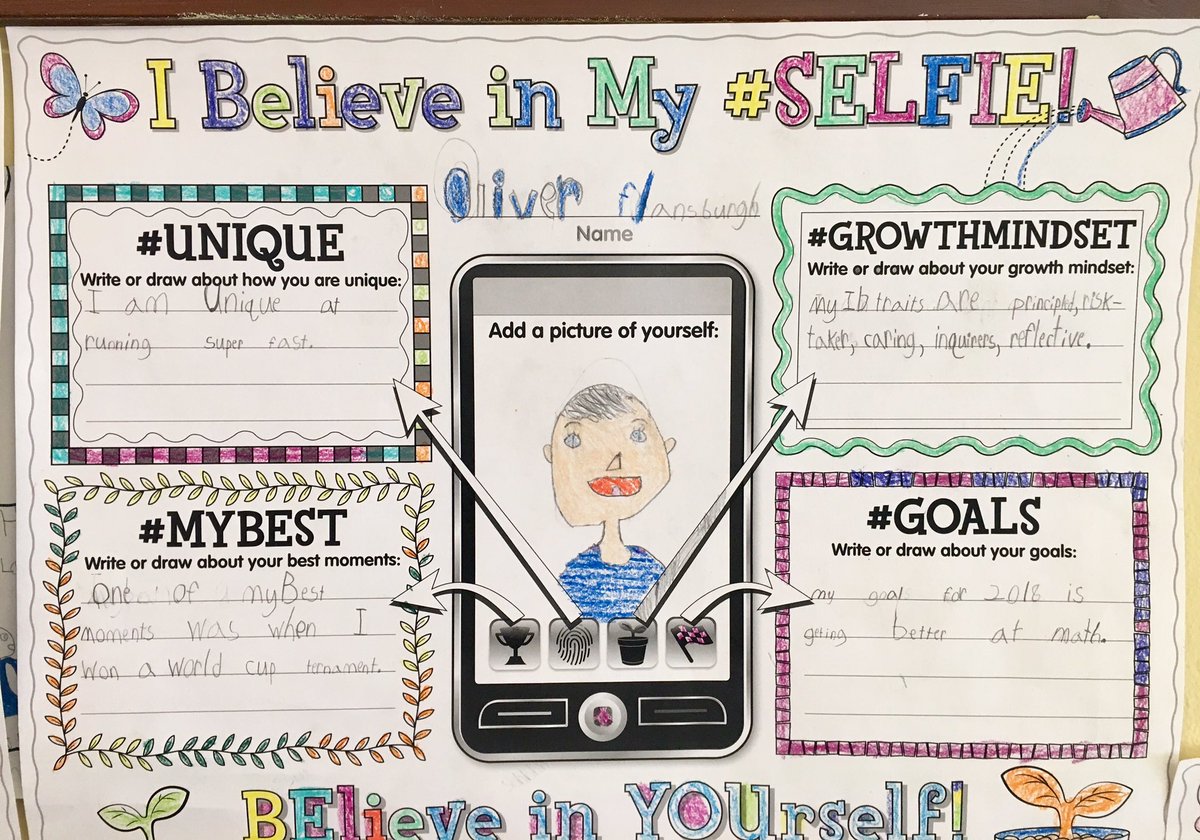 I Believe in My #SELFIE!
Oliver flansburgh
Name
#UNIQUE
Write or draw about how you are unique:
I am Unique at
running super fast.
#MYBEST
Write or draw about your best moments:
One of myBest
moments was when I
won a world cup ternament.
Add a picture of yourself:
#GROWTHMINDSET
Write or draw about your growth mindset:
my Ib traits are principled, risk-
taker, caring, inquirers, reflective.
#GOALS
Write or draw about your goals:
my goal for 2018 is
geting better at math.
BElieve in YOUrself!